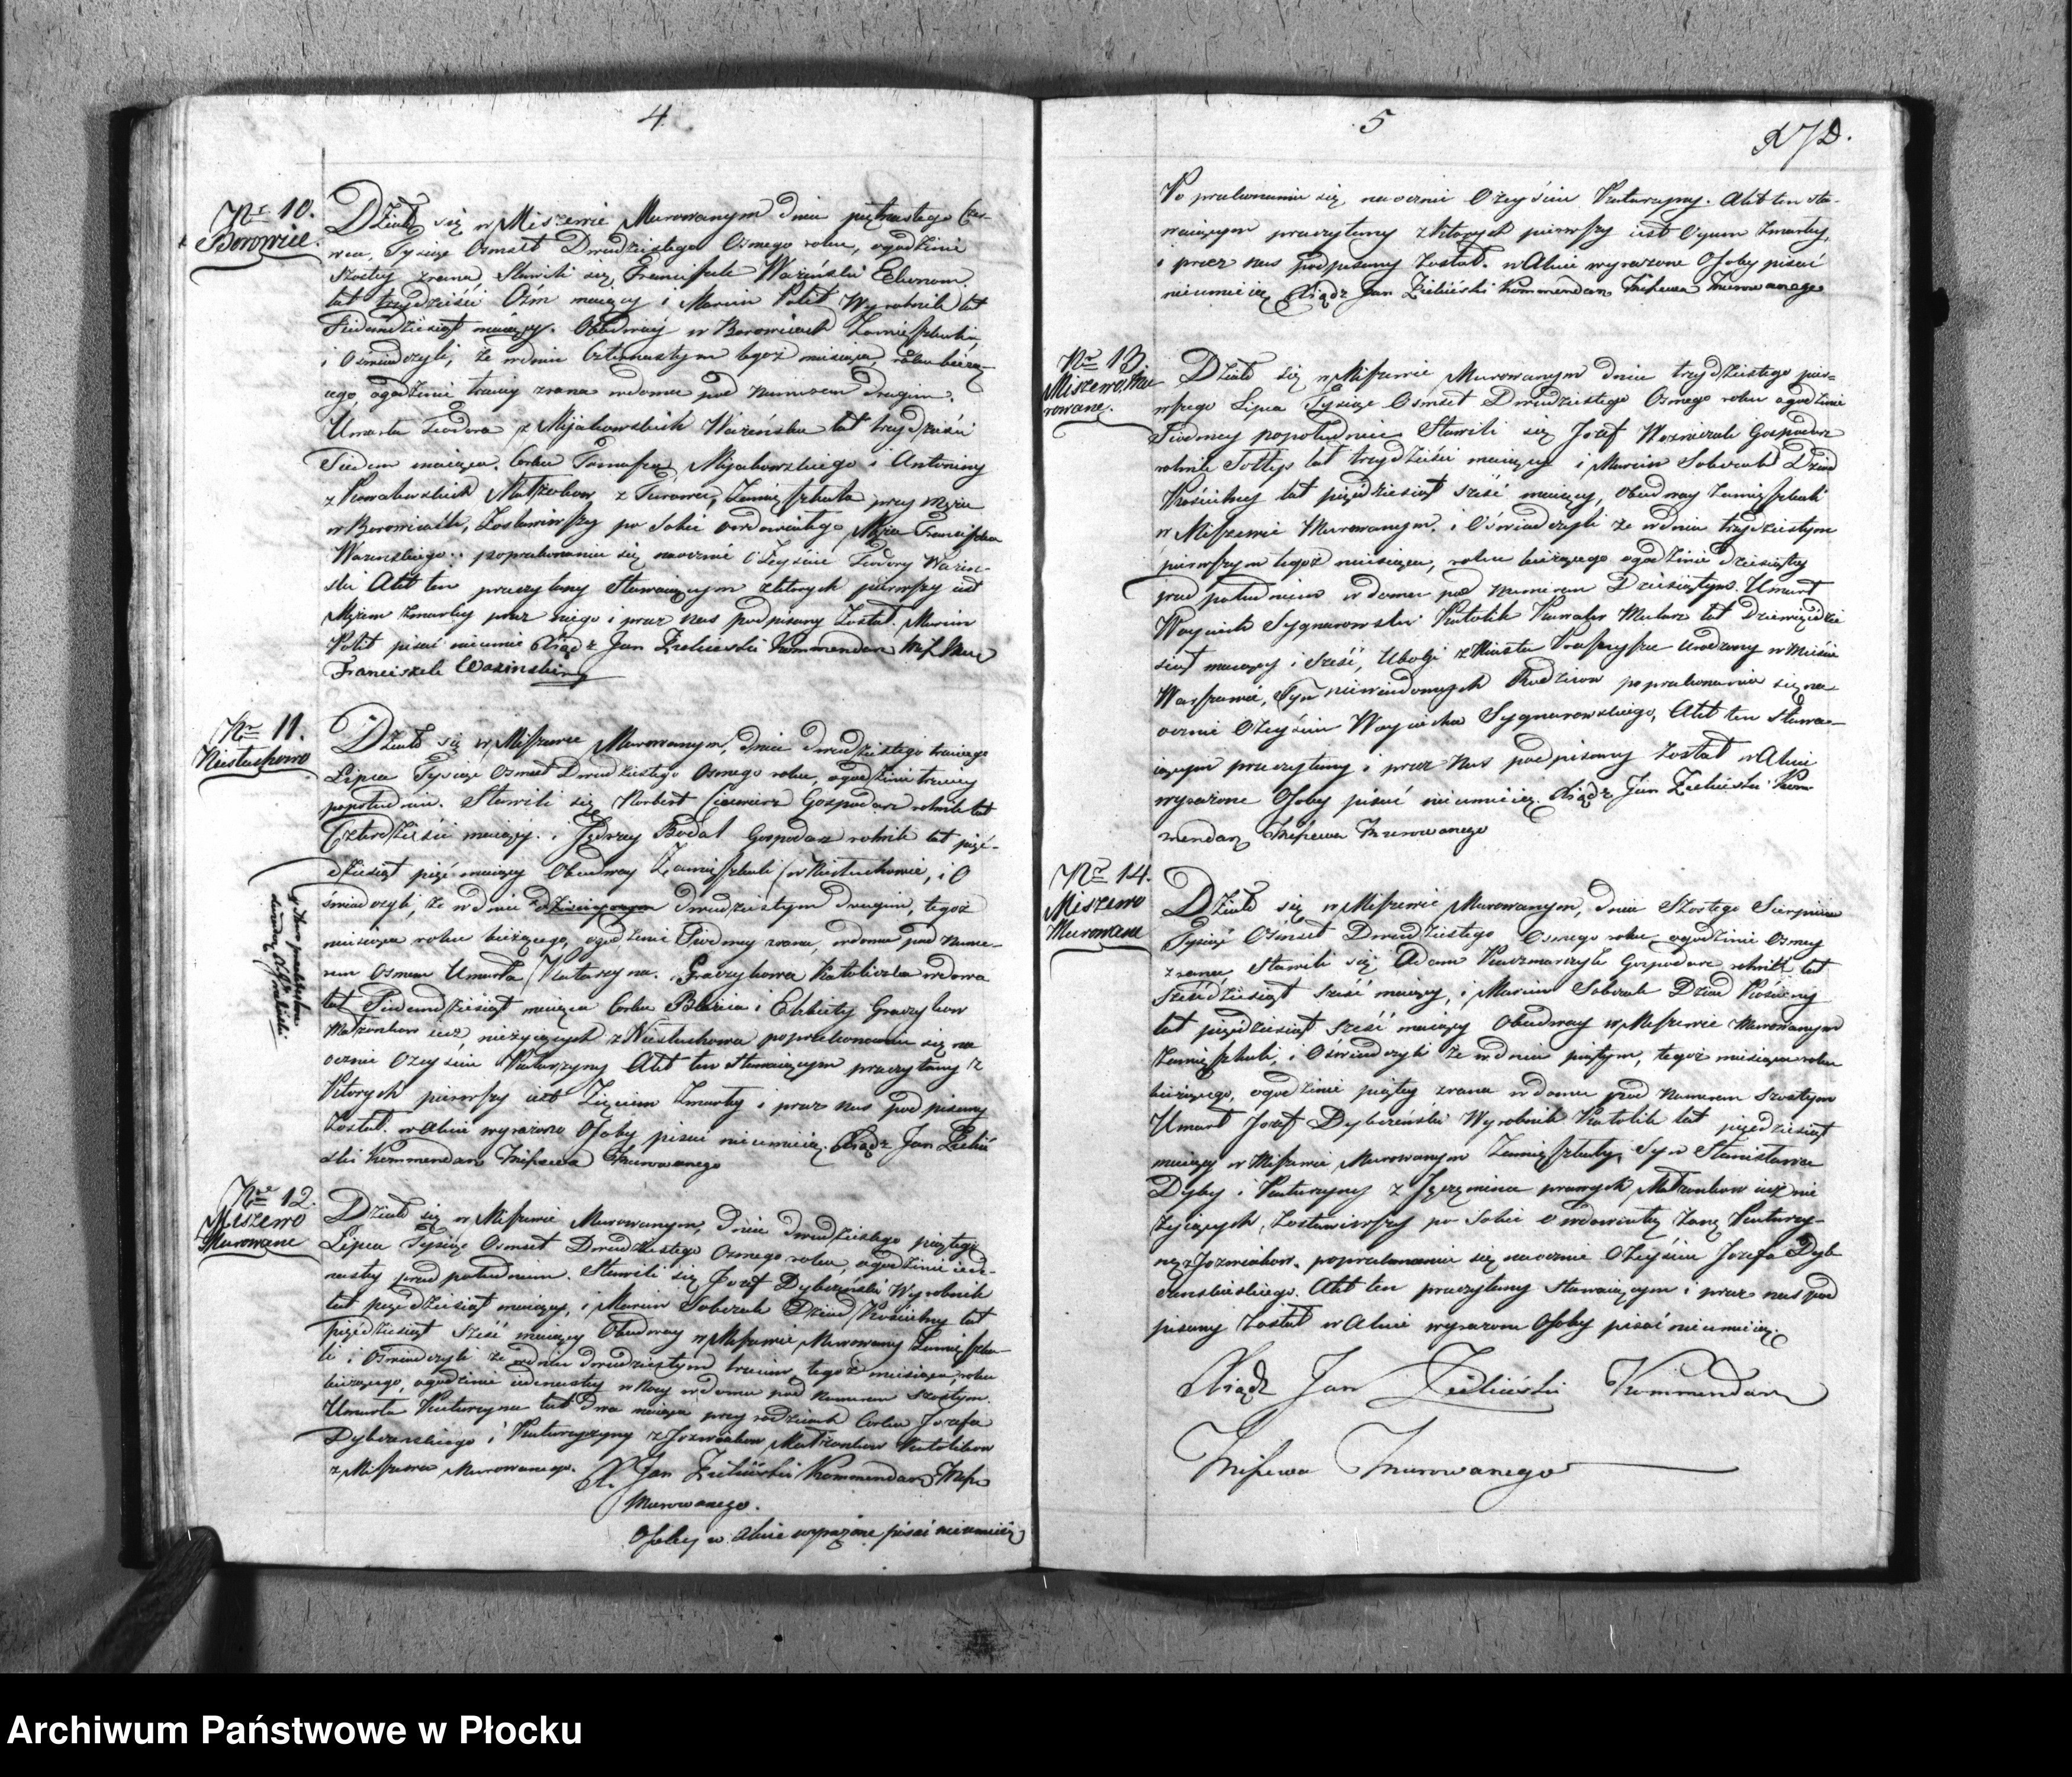 4
Nr 10.
Borowice.
Działo się w Miszewie Murowanym dnia piętnastego Czer-
wca, Tysiąc Osmset Dwudziestego Osmego roku, ogodzinie
szostey zrana. Stawili się Franciszek Waziński Ekonom
lat trzydzieści Ośm maiący i Marcin Polit Wyrobnik lat
Siedmdziesiąt maiący. Obudway w Borowicach Zamieszkali,
i Oswiadczyli, że w dniu Czternastym tegoż miesiąca, roku bieżą-
cego, ogodzinie trzeciy zrana w domu pod Numerem drugim,
Umarła Teodora z Mijakowskich Wazińska lat trzydzieści
Siedem maiąca. Corka Tomasza Mijakowskiego i Antoniny
z Kowalewskich Małżonkow z Turowa, Zamieszkała przy Mężu
w Borowicach, Zostawiwszy po Sobie owdowiałego Męża Franciszka
Wazinskiego. poprzekonaniu się naocznie Ozeyściu Teodory Wazin-
ski Akt ten przeczytany Stawaiącym z ktorych pierwszy iest
Mężem zmarłey przez niego i przez Nas podpisany Został. Marcin
Polit pisać nieumie Xiądz Jan Zieliński Kommendarz Misz Mur
Franciszek Wazinski
Nr 11.
Niesłuchowo
Działo się w Miszewie Murowanym, dnia dwudziestego trzeciego
Lipca Tysiąc Osmset Dwudziestego Osmego roku, ogodzinie trzeciy
popołudniu. Stawili się Norbert Gospodarz rolnik lat
Czterdzieści maiący. i Jędrzey Bodal Gospodarz rolnik lat pięć-
dziesiąt pięć maiący Obudway Zamieszkali w Niesłuchowie, i O
świadczyli, że w dniu dwudziestym drugim, tegoż
miesiąca roku bieżącego, ogodzinie Siodmey zrana, w domu pod Nume-
rem Osmem Umarła Katarzyna Graczykowa Katoliczka wdowa
lat Siedmdziesiąt maiąca Corka Błażeia i Elżbiety Graczykow
Małzonkow iuż nieżyiących z Niesłuchowa poprzekonaniu się na
ocznie Ozeysciu Katarzyny Akt ten stawaiącym przeczytany z
Ktorych pierwszy iest Zięciem Zmarłey i przez Nas podpisany
Został. w Akcie wyrazone Osoby pisać nieumieią. Xiądz Jan Zieliń
ski Kommendarz Miszewa Murowanego
Nro 12.
Miszewo
Murowane
Działo się w Miszewie Murowanym, dnia dwudziestego piątego
Lipca Tysiąc Osmset Dwudziestego Osmego roku, ogodzinie iede-
nastey przed południem. Stawili się Jozef Dybczński Wyrobnik
lat pięćdziesiąt maiący, i Marcin Sobczak Dziad Kościelny lat
pięćdziesiąt sześć maiący Obudway w Miszewie Murowany Zamieszka-
li i Oswiadczyli że w dniu dwudziestym trzecim, tegoż miesiąca, roku
bieżącego, ogodzinie iedenastey w Nocy w domu pod Numerem Szostym.
Umarła Katarzyna lat dwa maiąca przy rodzicach Corka Jozefa
Dybczanskiego i Katarzyny z Jozwiakow Małżonkow Katolikow
z Miszewa Murowanego. X. Jan Zieliński Kommendarz Misze
Murowanego.
Osoby w akcie wyrażone pisać nieumieią
5
Po przekonaniu się naocznie Ozeyściu Katarzyny. Akt ten sta-
waiącym przeczytany z Ktorych pierwszy iest Oycem Zmarłey,
i przez nas podpisany Został. w Akcie wyrazone Osoby pisać
nieumieią Xiądz Jan Zieliński Kommendarz Miszewa Murowanego
Nr 13
Miszewo Mu
rowane.
Działo się w Miszewie Murowanym dnia trzydziestego pier-
wszego Lipca Tysiąc Osmset Dwudziestego Osmego roku ogodzinie
Siodmey popołudniu Stawili się Jozef Wozniczak Gospodarz
rolnik Sołtys lat trzydzieści maiący i Marcin Sobczak Dziad
Kościelney lat pięćdziesiąt sześć maiący, Obudway Zamieszkali
w Miszewie Murowanym. i Oświadczyli że w dniu trzydziestym
pierwszym tegoż miesiąca, roku bieżącego ogodzinie dziesiątey
przed południem w domu pod Numerem Dziesiątym. Umarł
Woyciech Sygnarowski Katolik Kawaler Mularz lat Dziewięćdzie
siąt maiący i sześć, Ubogi z Miasta Urodzony w Mieście
Warszawie, Syn niewiadomych Rodzicow poprzekonaniu się na
ocznie Ozeyściu Woyciecha Sygnarowskiego, Akt ten stawa-
iącym przeczytany i przez Nas podpisany został w Akcie
wyrażone Osoby pisać nieumieią. Xiądz Jan Zieliński Kom-
mendarz Miszewa Murowanego
Nr 14.
Miszewo
Murowane
Działo się w Miszewie Murowanym, dnia Szostego Sierpnia
Tysiąc Osmset Dwudziestego Osmego roku ogodzinie Osmey
zrana, Stawili się Adam Kaczmarczyk Gospodarz rolnik lat
sześćdziesiąt sześć maiący, i Marcin Sobczak Dziad Kościelny
lat pięćdziesiąt sześć maiący Obudway w Miszewie Murowanym
Zamieszkali, i Oświadczyli że w dniu piątym, tegoż miesiąca roku
bieżącego, ogodzinie piątey zrana w domu pod Numerem Szostym
Umarł Jozef Dybczeński Wyrobnik Katolik lat pięćdziesiąt
maiący w Miszewie Murowanym Zamieszkały, Syn Stanisława
Dyby i Katarzyny z prawych Małzonkow iuż nie
żyiących, Zostawiwszy po Sobie owdowiałą Żonę Katarzy-
nę z Jozwiakow. poprzekonaniu się naocznie Ozeyściu Jozefa Dyb
czanskieskiego. Akt ten przeczytany Stawaiącym i przez nas pod
pisany Został w Akcie wyrazone Osoby pisać nieumieią.
Xiądz Jan Zieliński Kommendarz
Miszewa Murowanego
Archiwum Państwowe w Płocku